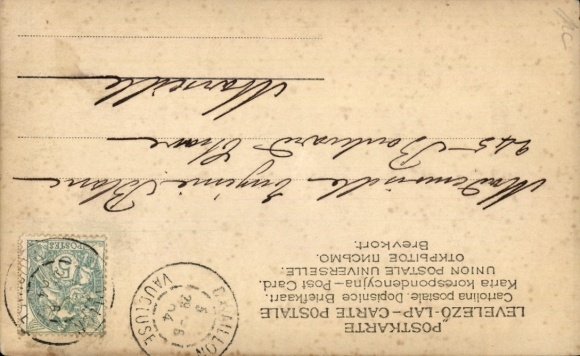 POSTKARTE
LEVELEZŐ-LAP-CARTE POSTALE
Cartolina postale. Dopisnice Briefkaart.
Karta korespondencyjna-Post Card.
UNION POSTALE UNIVERSELLE.
ОТКРЫТОЕ ПИСЬМО.
Brevkort.
CAVAILLON
5
29 -6
04
VAUCLUSE
POSTES
Mademoiselle Eugénie Blanc
245 Boulevard Chave
Marseille